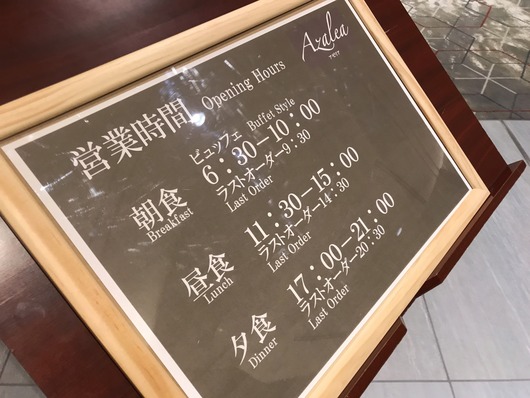 Azalea
アゼリア
営業時間 Opening Hours
ビュッフェ Buffet Style
朝食 6：30－10：00
Breakfast ラストオーダー9：30
Last Order
昼食 11：30－15：00
Lunch ラストオーダー14：30
Last Order
夕食 17：00－21：00
Dinner ラストオーダー20：30
Last Order